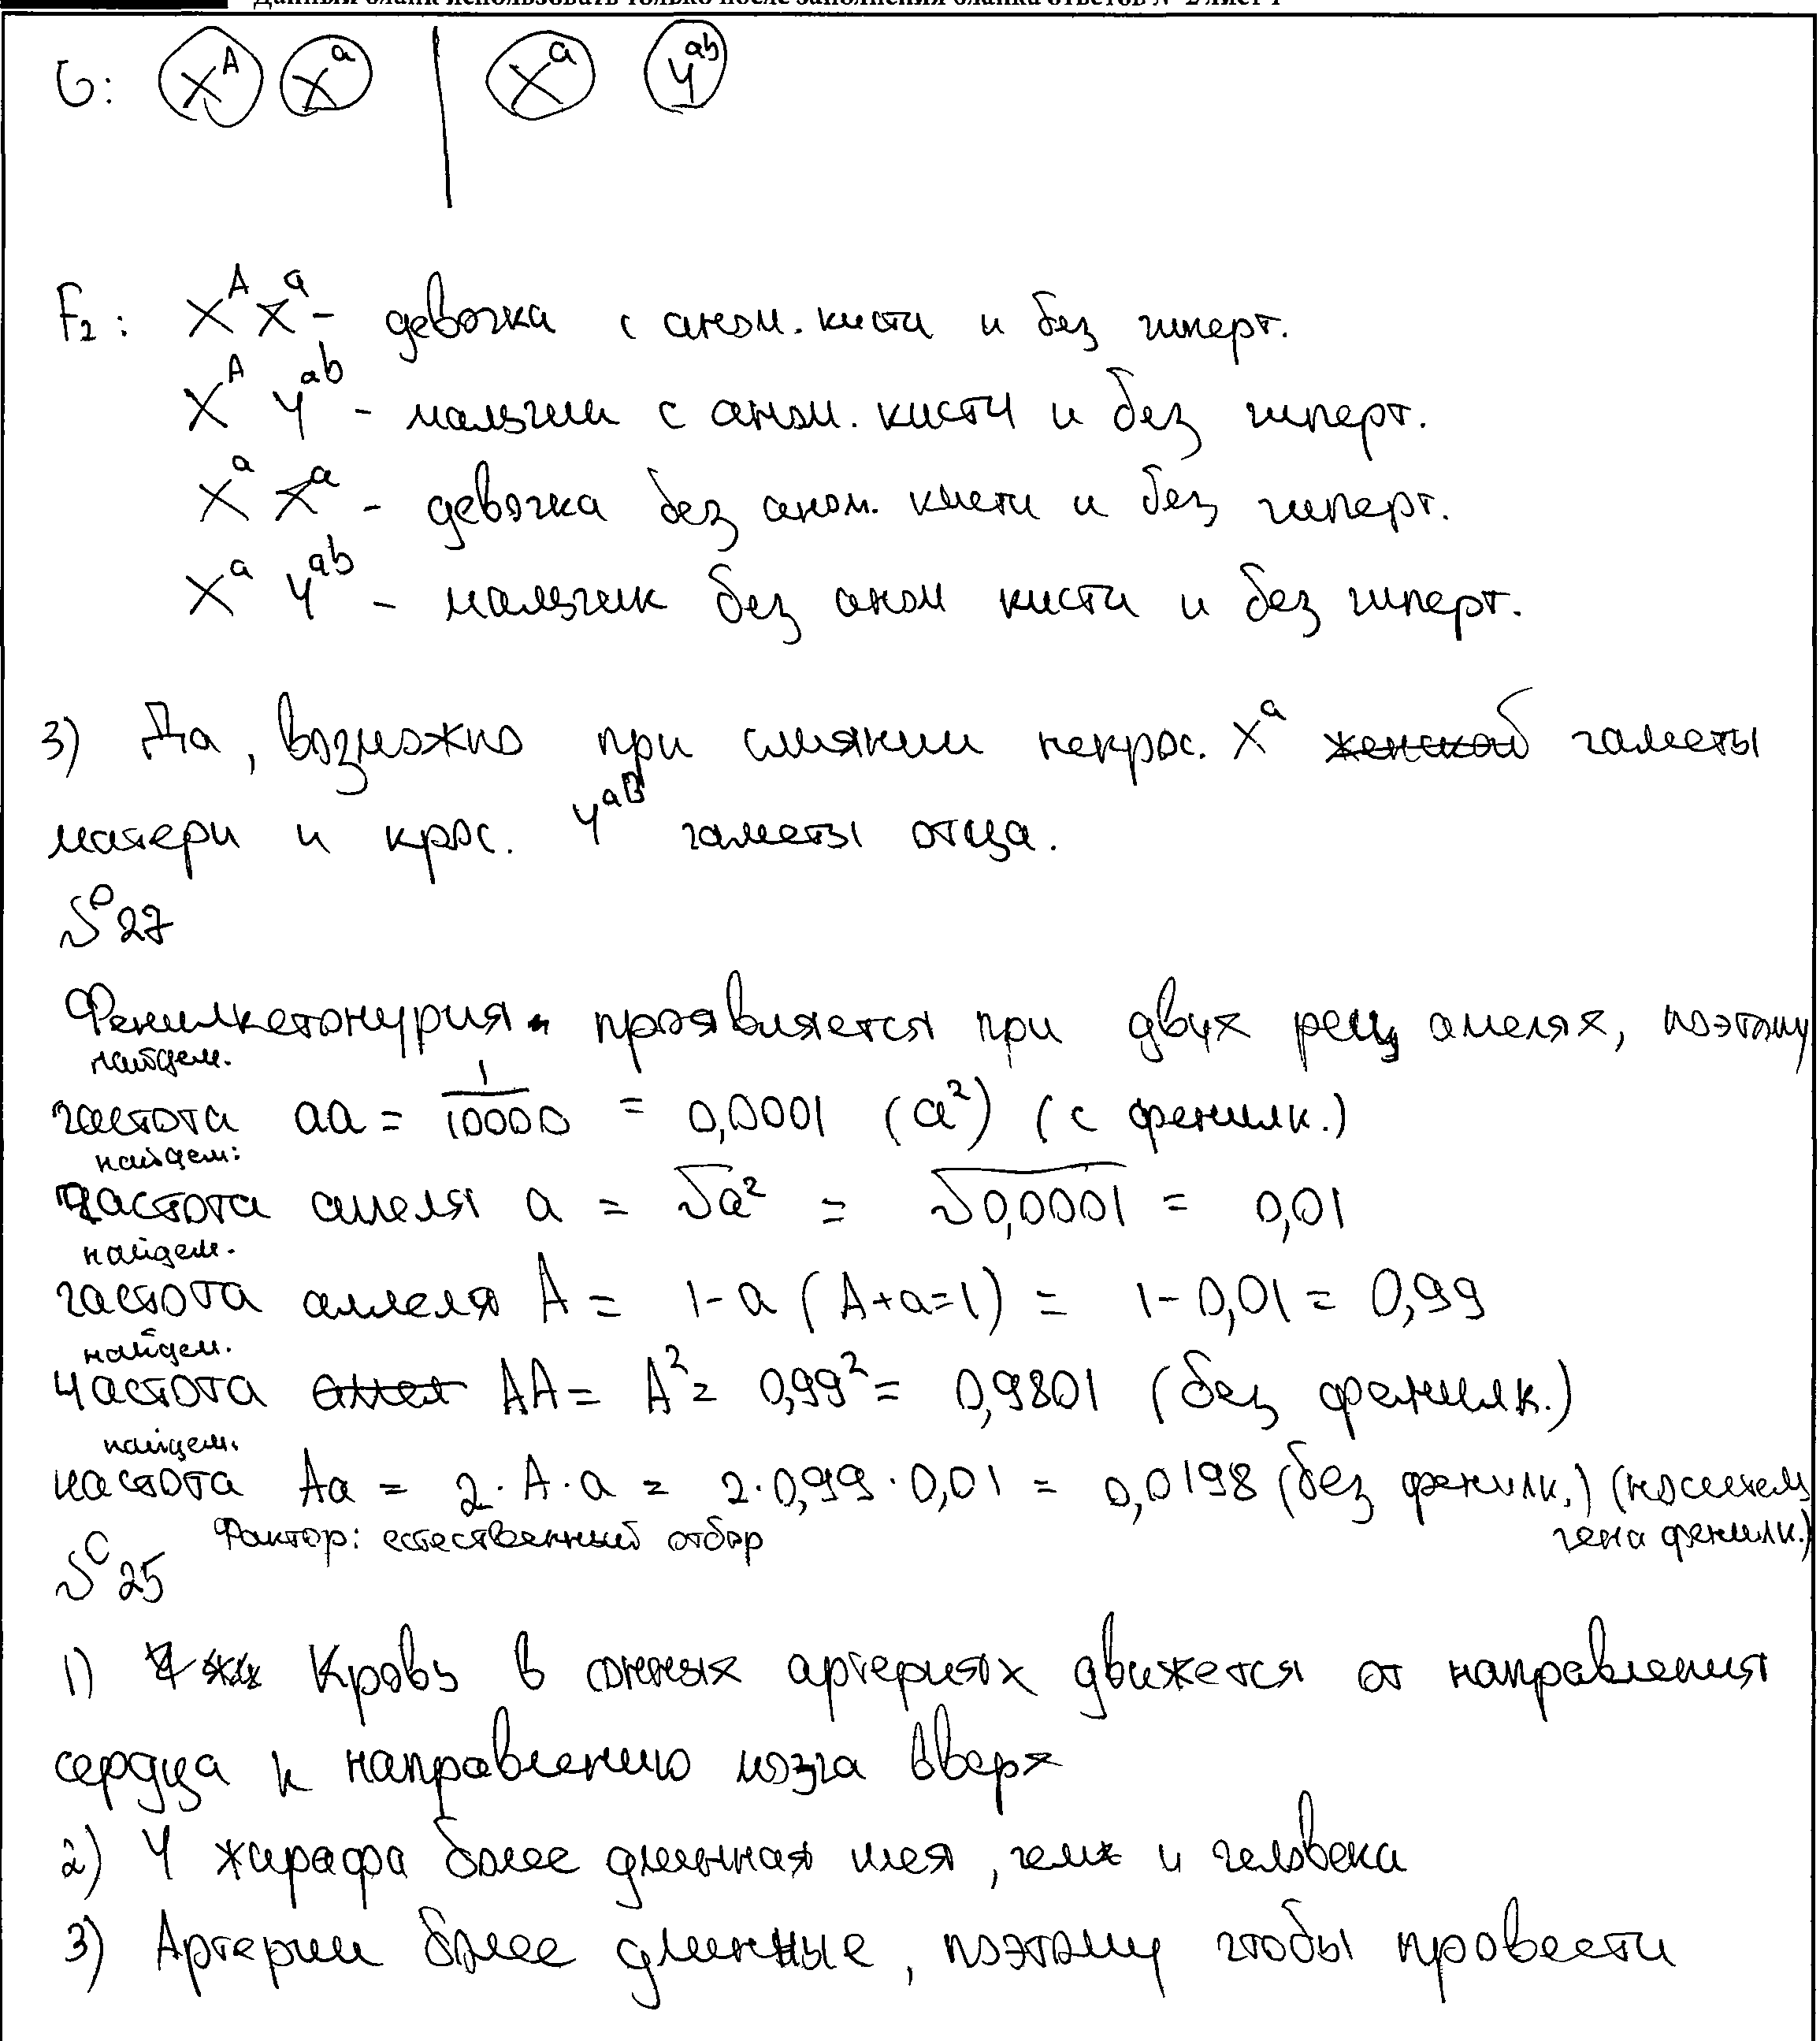 Данный бланк использовать только после заполнения бланка ответов № 2 лист 1
G: X^A X^a | X^a Y^ab
F₂: X^A X^a - девочка с аном. кисти и без гиперт.
X^A Y^ab - мальчик с аном. кисти и без гиперт.
X^a X^a - девочка без аном. кисти и без гиперт.
X^a Y^ab - мальчик без аном кисти и без гиперт.
3) Да, возможно при слиянии некрос. X^a гаметы
матери и крос. Y^aB гаметы отца.
№27
Фенилкетонурия проявляется при двух рец аллелях, поэтому
найдем.
частота aa = 1/10000 = 0,0001 (a²) (с фенилк.)
найдем:
частота аллеля a = √a² = √0,0001 = 0,01
найдем.
частота аллеля A = 1-a (A+a=1) = 1-0,01 = 0,99
найдем.
частота AA = A² = 0,99² = 0,9801 (без фенилк.)
найдем.
частота Aa = 2·A·a = 2·0,99·0,01 = 0,0198 (без фенилк.) (носители
гена фенилк.)
Фактор: естественный отбор
№25
1) Кровь в сонных артериях движется от направления
сердца к направлению мозга вверх
2) У жирафа более длинная шея, чем у человека
3) Артерии более длинные, поэтому чтобы провести